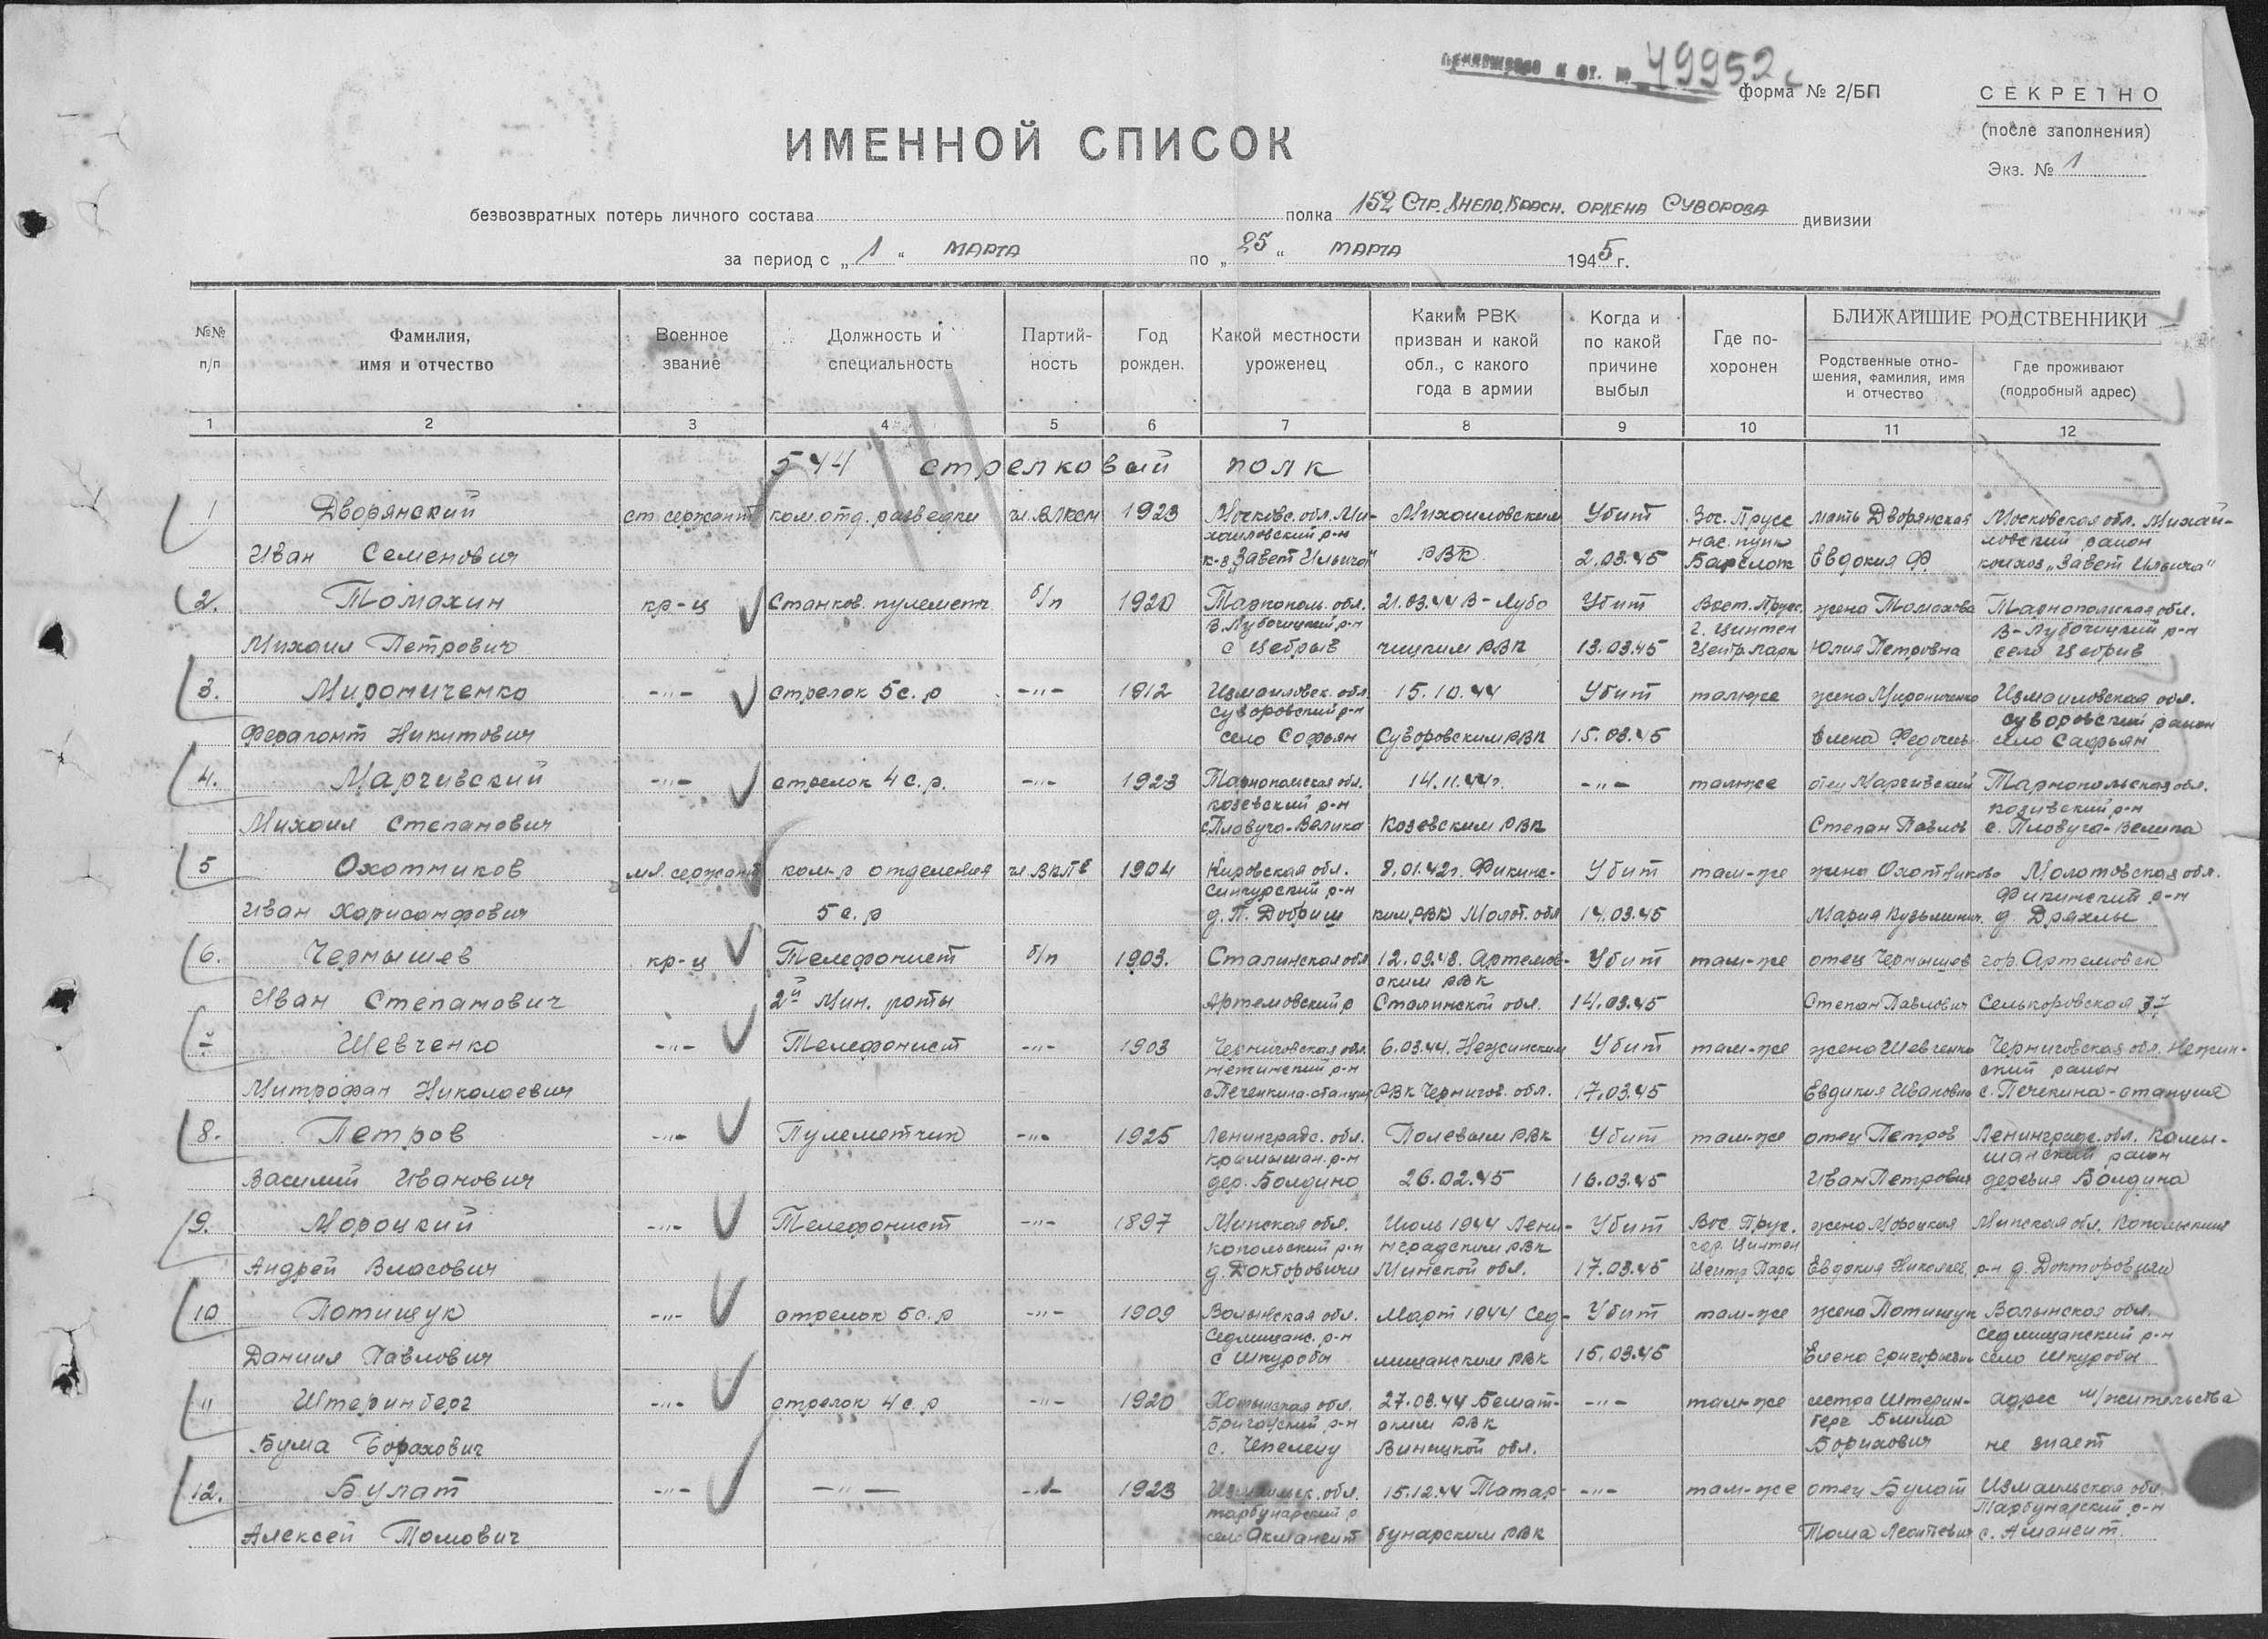 49952с
форма № 2/БП
СЕКРЕТНО
(после заполнения)
Экз. № 1
ИМЕННОЙ СПИСОК
безвозвратных потерь личного состава полка 152 Стр. Днепр. Красн. ордена Суворова дивизии
за период с „1“ марта по „25“ марта 1945 г.
№№ п/п
Фамилия, имя и отчество
Военное звание
Должность и специальность
Партийность
Год рожден.
Какой местности уроженец
Каким РВК призван и какой обл., с какого года в армии
Когда и по какой причине выбыл
Где похоронен
БЛИЖАЙШИЕ РОДСТВЕННИКИ
Родственные отношения, фамилия, имя и отчество
Где проживают (подробный адрес)
1 2 3 4 5 6 7 8 9 10 11 12
544 стрелковый полк
1 Дворянский ст. сержант ком. отд. разведки чл. ВЛКСМ 1923 Московс. обл. Ми- Михаиловским Убит Вос. Прусс мать Дворянская Московская обл. Михай-
хаиловский р-н нас. пунк ловский район
Иван Семенович к-з „Завет Ильича" РВК 2.03.45 Евдокия Ф колхоз „Завет Ильича"
2. Томахин кр-ц Станков. пулеметч. б/п 1920 Тарнополь. обл. 21.03.44 В-Лубо Убит Вост. Прусс. жена Томахова Тарнопольская обл.
В. Лубочицкий р-н г. Цинтен В-Лубочицкий р-н
Михаил Петрович с Цебрыв чицким РВК 13.03.45 Центр. парк Юлия Петровна село Цебрив
3. Мирониченко -"- стрелок 5 с. р -"- 1912 Измаиловск. обл. 15.10.44 Убит там же жена Мирониченко Измаиловская обл.
Суворовский р-н Суворовский район
Ферапонт Никитович село Софьян Суворовским РВК 15.03.45 Елена село Сафьян
4. Марчивский -"- стрелок 4 с. р. -"- 1923 Тарнопольская обл. 14.11.44г. -"- там же отец Марчивский Тарнопольская обл.
Козевский р-н Козивский р-н
Михаил Степанович с Плавуча-Велика Козевским РВК Степан Павлов с. Пловуча-Велика
5 Охотников мл. сержант ком-р отделения чл. ВКПб 1904 Кировская обл. 8.01.42г. Фикинс- Убит там-же жена Охотникова Молотовская обл.
р-н Фикинский р-н
Иван Харисанфович 5 с. р д. П. Добриш ким РВК Молот. обл 14.03.45 Мария Кузьминич. д. Дряхлы
6. Чернышев кр-ц Телефонист б/п 1903. Сталинская обл 12.09.43. Артемов- Убит там-же отец Чернышов гор. Артемовск
ским РВК
Иван Степанович 2й Мин. роты Артемовский р Сталинской обл. 14.03.45 Степан Павлович Селькоровская 37
Шевченко -"- Телефонист -"- 1903 Черниговская обл. 6.03.44. Нежинским Убит там-же жена Шевченко Черниговская обл. Нежин-
нежинский р-н ский район
Митрофан Николаевич с Печенкина-станция РВК Чернигов. обл. 17.03.45 Евдикия Ивановна с. Печекина-станция
8. Петров -"- Пулеметчик -"- 1925 Ленинградс. обл. Полевым РВК Убит там-же отец Петров Ленинградс. обл. Камы-
р-н шанский район
Василий Иванович дер. Болдино 26.02.45 16.03.45 Иван Петрович деревня Болдина
9. Мороцкий -"- Телефонист -"- 1897 Минская обл. Июль 1944 Лени- Убит Вос. Прус. жена Мороцкая Минская обл. Копольский
Копольский р-н нградским РВК гор. Цинтен
Андрей Власович д. Докторовичи Минской обл. 17.03.45 Центр Парк Евдокия Николаев. р-н д. Докторовичи
10 Потищук -"- стрелок 5 с. р -"- 1909 Волынская обл. Март 1944 Сед- Убит там-же жена Потищук Волынская обл.
Седлищанс. р-н Седлищанский р-н
Даниил Павлович с Шкуробы лищанским РВК 15.03.45 Елена Григорьевн село Шкуробы
11 Штеринберг -"- стрелок 4 с. р -"- 1920 Хотынская обл. 27.03.44 -"- там-же сестра Штерин- адрес м/жительства
р-н ским РВК берг Блима
Бума Борахович с. Чепелеуц Виницкой обл. Борихович не знает
12. Булат -"- -"- -"- 1923 Измаильск. обл. 15.12.44 Татар- -"- там-же отец Булат Измаильская обл.
тарбунарский р Тарбунарский р-н
Алексей Томович село Акмангит бунарским РВК Тома Леонтьевич с. Амангит.